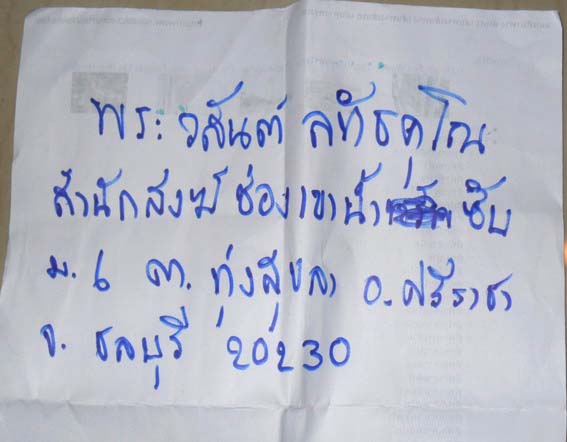 พระ วสันต์ ลทัธคุโณ
สำนักสงฆ์ ช่องเขาน้ำ ซับ
ม. ๖ ต. ทุ่งสุขลา อ. ศรีราชา
จ. ชลบุรี 20230